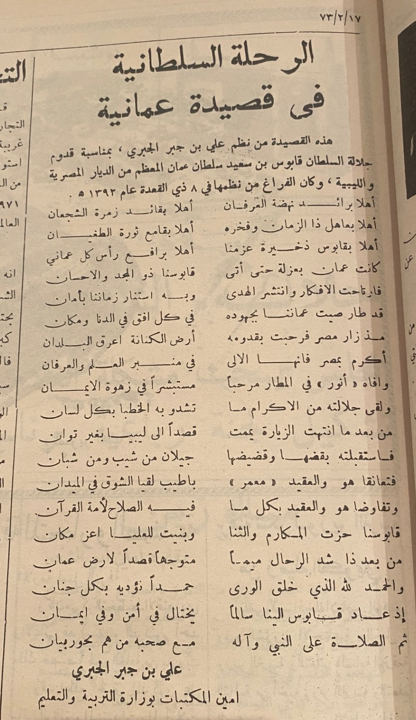 ٧٣/٢/١٧
الرحلة السلطانية
في قصيدة عمانية
هذه القصيدة من نظم علي بن جبر الجبري ، بمناسبة قدوم
جلالة السلطان قابوس بن سعيد سلطان عمان المعظم من الديار المصرية
والليبية ، وكان الفراغ من نظمها في ٨ ذي القعدة عام ١٣٩٢ ه .
أهلا برائد نهضة العرفان أهلا بقائد زمرة الشجعان
أهلا بعاهل ذا الزمان وفخره أهلا بقامع ثورة الطغيان
أهلا بقابوس ذخيرة عزمنا أهلا برافع رأس كل عماني
كانت عمان بعزلة حتى أتى قابوسنا ذو المجد والاحسان
فارتاحت الافكار وانتشر الهدى وبه استنار زماننا بأمان
قد طار صيت عماننا بجهوده في كل افق في الدنا ومكان
مذ زار مصر فرحبت بقدومه أرض الكنانة اعرق البلدان
أكرم بمصر فانها الالى في منبر العلم والعرفان
وافاه « أنور » في المطار مرحباً مستبشراً في زهوة الايمان
ولقى جلالته من الاكرام ما تشدو به الخطبا بكل لسان
من بعد ما انتهت الزيارة يممت قصداً الى ليبيا بغير توان
فاستقبلته بقضها وقضيضها جيلان من شيب ومن شبان
فتعانقا هو والعقيد « معمر » باطيب لقيا الشوق في الميدان
وتفاوضا هو والعقيد بكل ما فيه الصلاح لأمة القرآن
قابوسنا حزت المكارم والثنا وبنيت للعليا اعز مكان
من بعد ذا شد الرحال ميمماً متوجهاً قصداً لارض عمان
والحمد لله الذي خلق الورى حمداً نؤديه بكل جنان
إذ عاد قابوس الينا سالماً يختال في أمن وفي ايمان
ثم الصلاة على النبي وآله مع صحبه من هم بحور بيان
علي بن جبر الجبري
امين المكتبات بوزارة التربية والتعليم